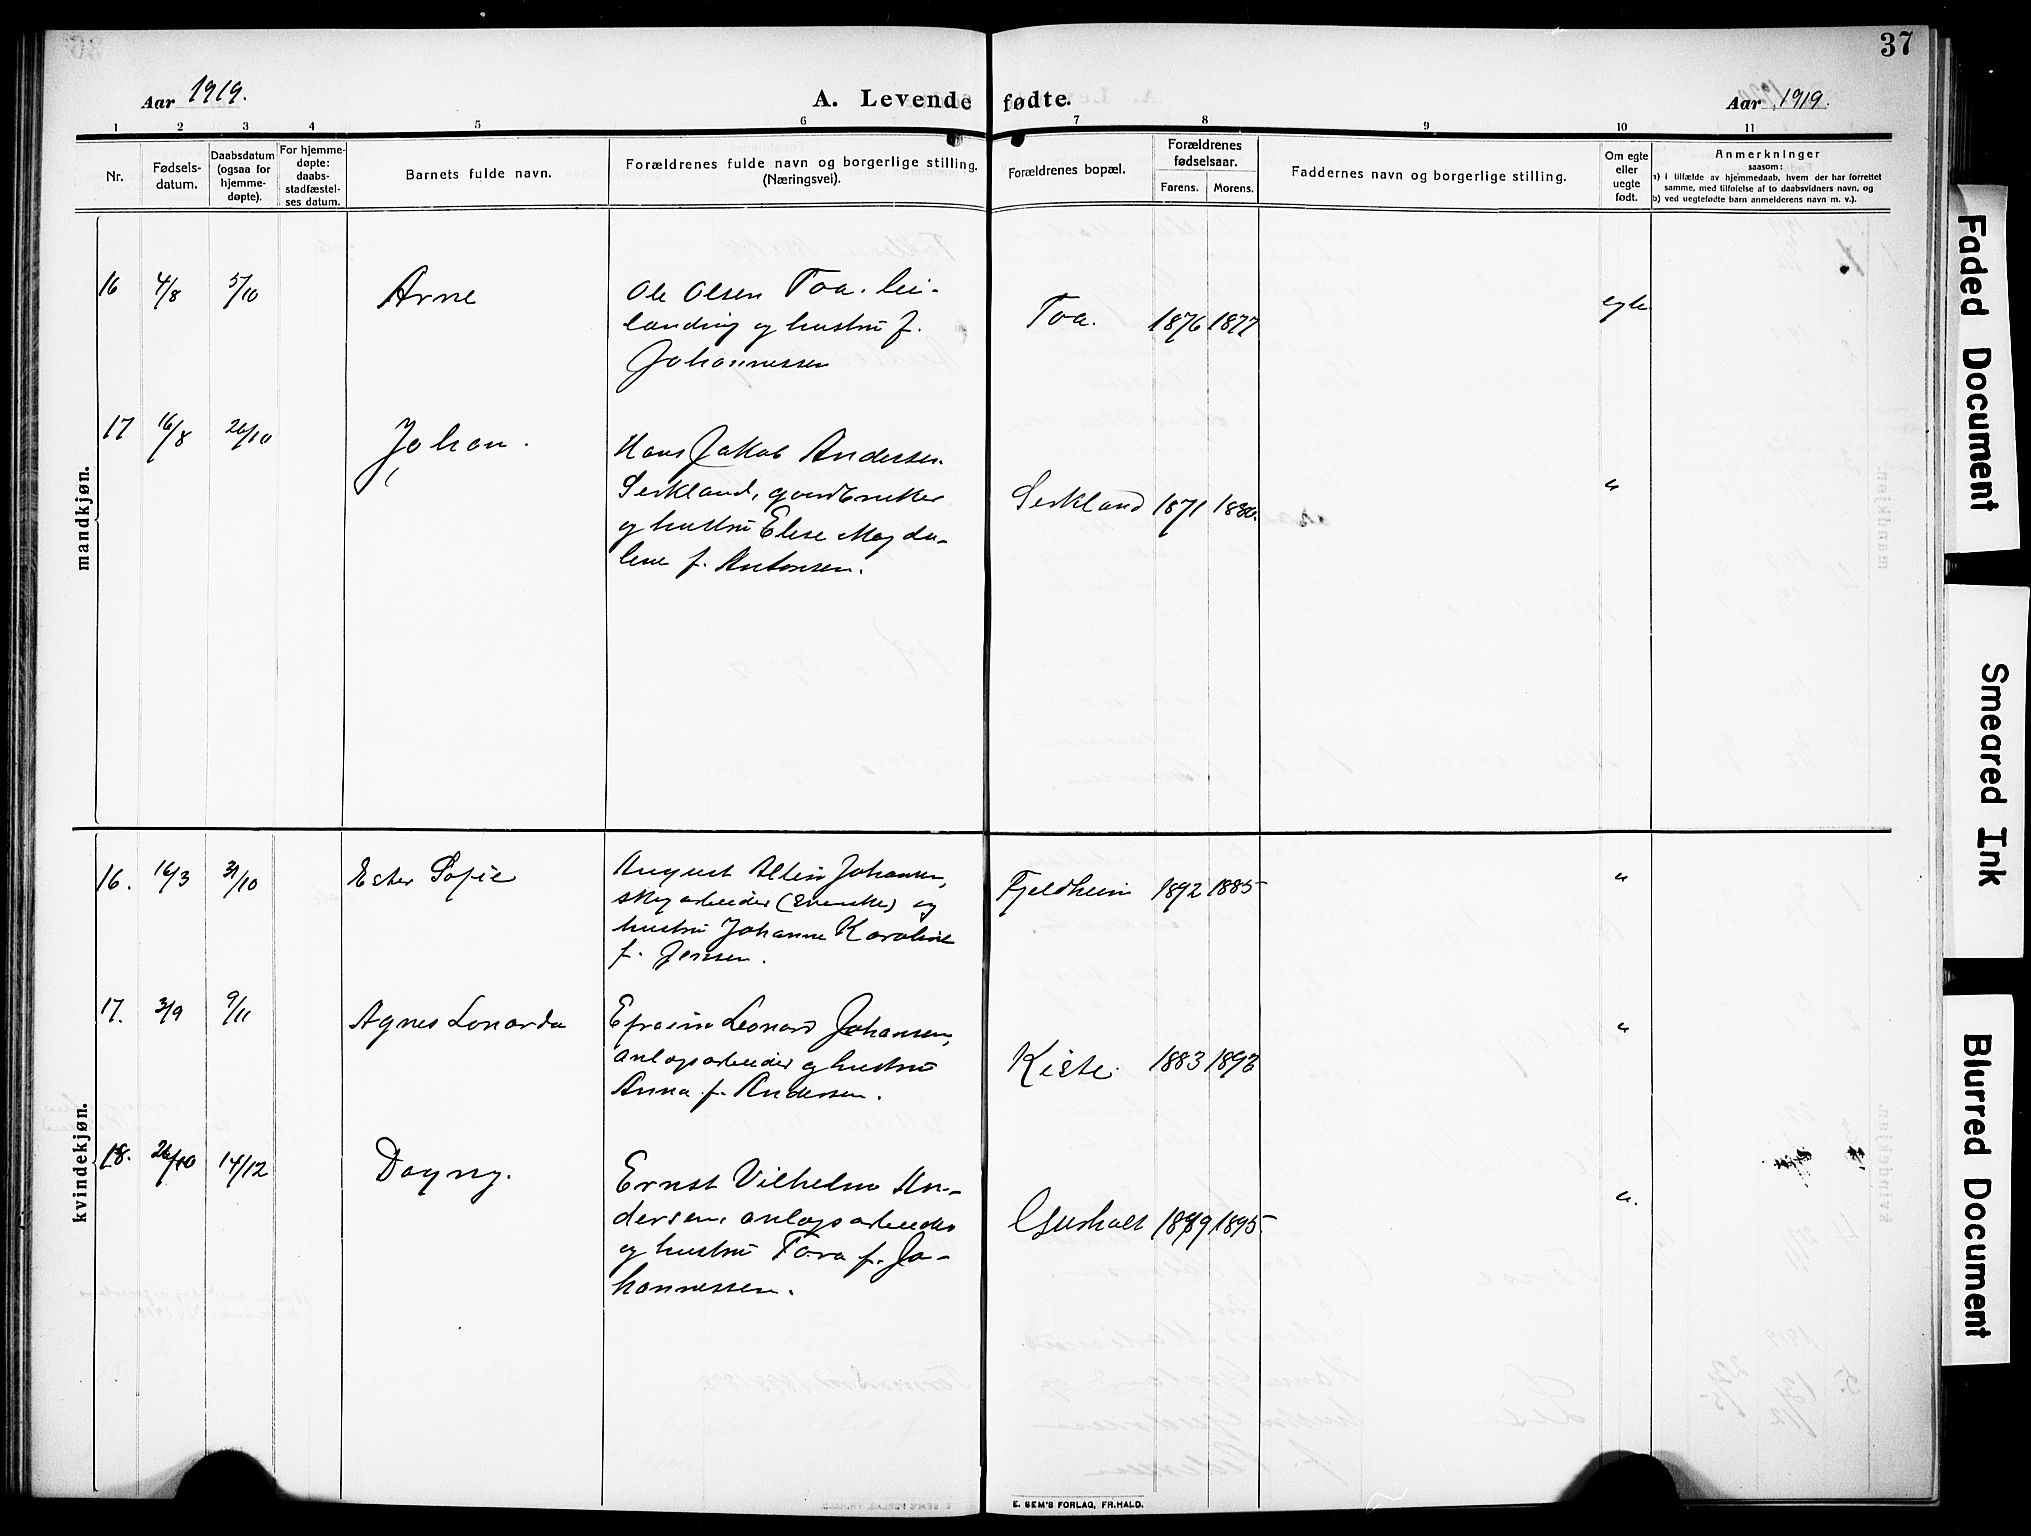 37
Aar 1919.
A. Levende fødte.
Aar 1919.
1 2 3 4 5 6 7 8 9 10 11
Nr.
Fødsels-
datum.
Daabsdatum
(ogsaa for
hjemme-
døpte).
For hjemme-
døpte:
daabs-
stadfæstel-
ses datum.
Barnets fulde navn.
Forældrenes fulde navn og borgerlige stilling.
(Næringsvei).
Forældrenes bopæl.
Forældrenes
fødselsaar.
Farens. Morens.
Faddernes navn og borgerlige stilling.
Om egte
eller
uegte
født.
Anmerkninger
saasom:
a) i tilfælde av hjemmedaab, hvem der har forrettet
samme, med tilføielse af to daabsvidners navn, og
b) ved uegtefødte barn anmelderens navn m. v.).
mandkjøn.
16 4/8 5/10 Arne
Ole Olsen Toa. lei-
lænding og hustru f.
Johannessen
Toa. 1876 1877 egte.
17 16/8 26/10 Johan.
Hans Jakob Andersen
Serkland, gaardbruker
og hustru Elise Magda-
lene f. Antonsen.
Serkland 1871 1880. "
kvindekjøn.
16. 16/3 31/10 Ester Sofie
August Albin Johansen,
skogarbeider (svenske) og
hustru Johanne Karoline
f. Jenssen.
Fjeldheim 1892 1885 "
17. 3/9 9/11 Agnes Lonarda
Efraim Leonard Johansen,
anlægsarbeider og hustru
Anna f. Andersen.
Kiste. 1883 1893 "
18. 26/10 14/12 Dagny.
Ernst Vilhelm An-
dersen, anlægsarbeider
og hustru Tora f. Jo-
hannessen.
1889 1895. "
E. SEM'S FORLAG, FR.HALD.
Faded Document
Smeared Ink
Blurred Document